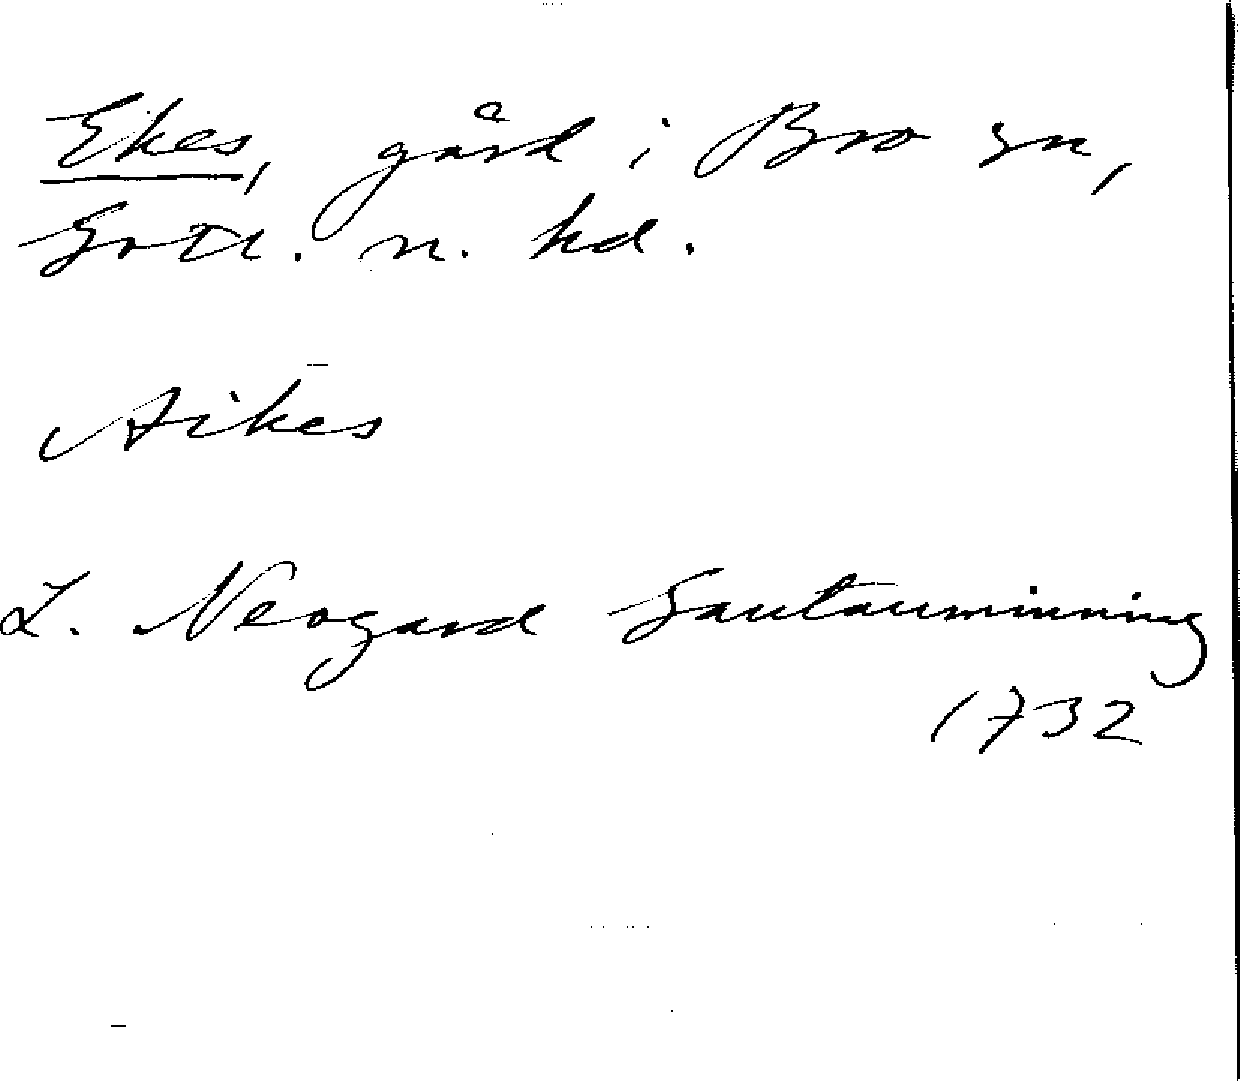 Ekes, gård i Bro sn,
Gotl. n. hd.
Aikes
L. Neogard Gautauminning
1732